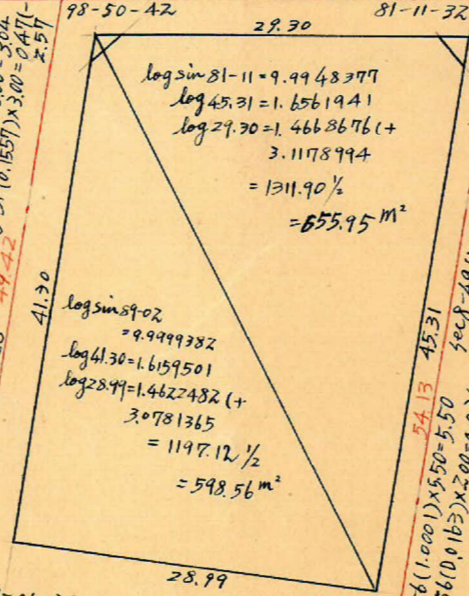 98-50-42
29.30
81-11-32
log sin 81-11=9.9948377
log 45.31=1.6561941
log 29.30=1.4668676(+
3.1178994
=1311.90 1/2
=655.95 m²
41.30
log sin 89-02
=9.9999382
log 41.30=1.6159501
log 28.99=1.4622482(+
3.0781365
=1197.12 1/2
=598.56 m²
28.99
45.31
54.13
49.42
(0.1557)×3.00=0.471-
2.57
6(1.0001)×5.50=5.50